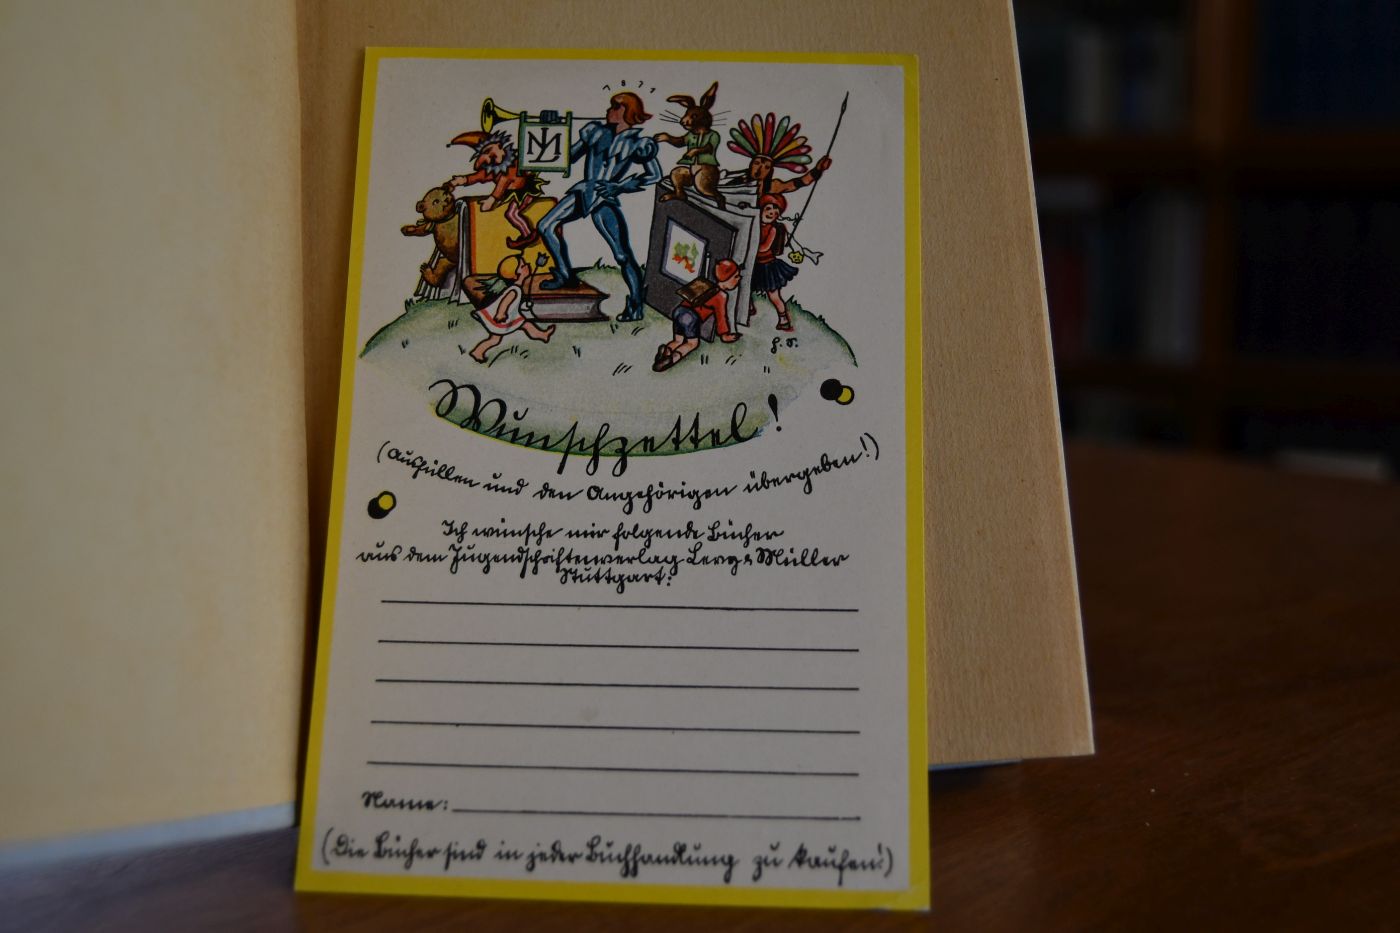 1877
LM
H. S.
Wunschzettel!
(Ausfüllen und den Angehörigen übergeben!)
Ich wünsche mir folgende Bücher
aus dem Jugendschriftenverlag Levy & Müller
Stuttgart:
Name:
(Die Bücher sind in jeder Buchhandlung zu kaufen!)